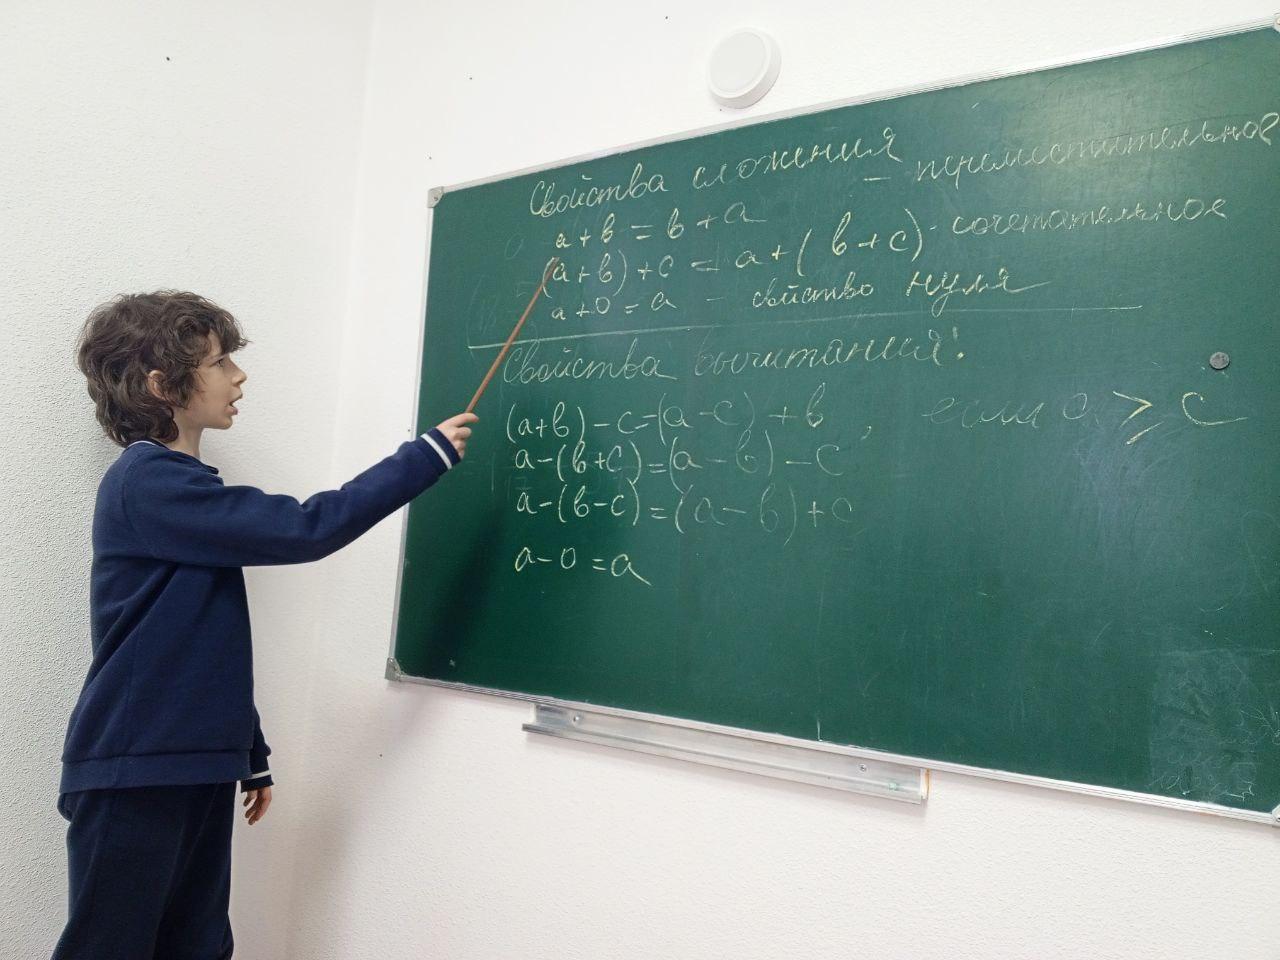 Свойства сложения
а + в = в + а - переместительное
(а+в) + с = а + (в + с) - сочетательное
а + 0 = а - свойство нуля
Свойства вычитания:
(а+в) - с = (а - с) + в, если а ⩾ с
а - (в+с) = (а - в) - с
а - (в - с) = (а - в) + с
а - 0 = а